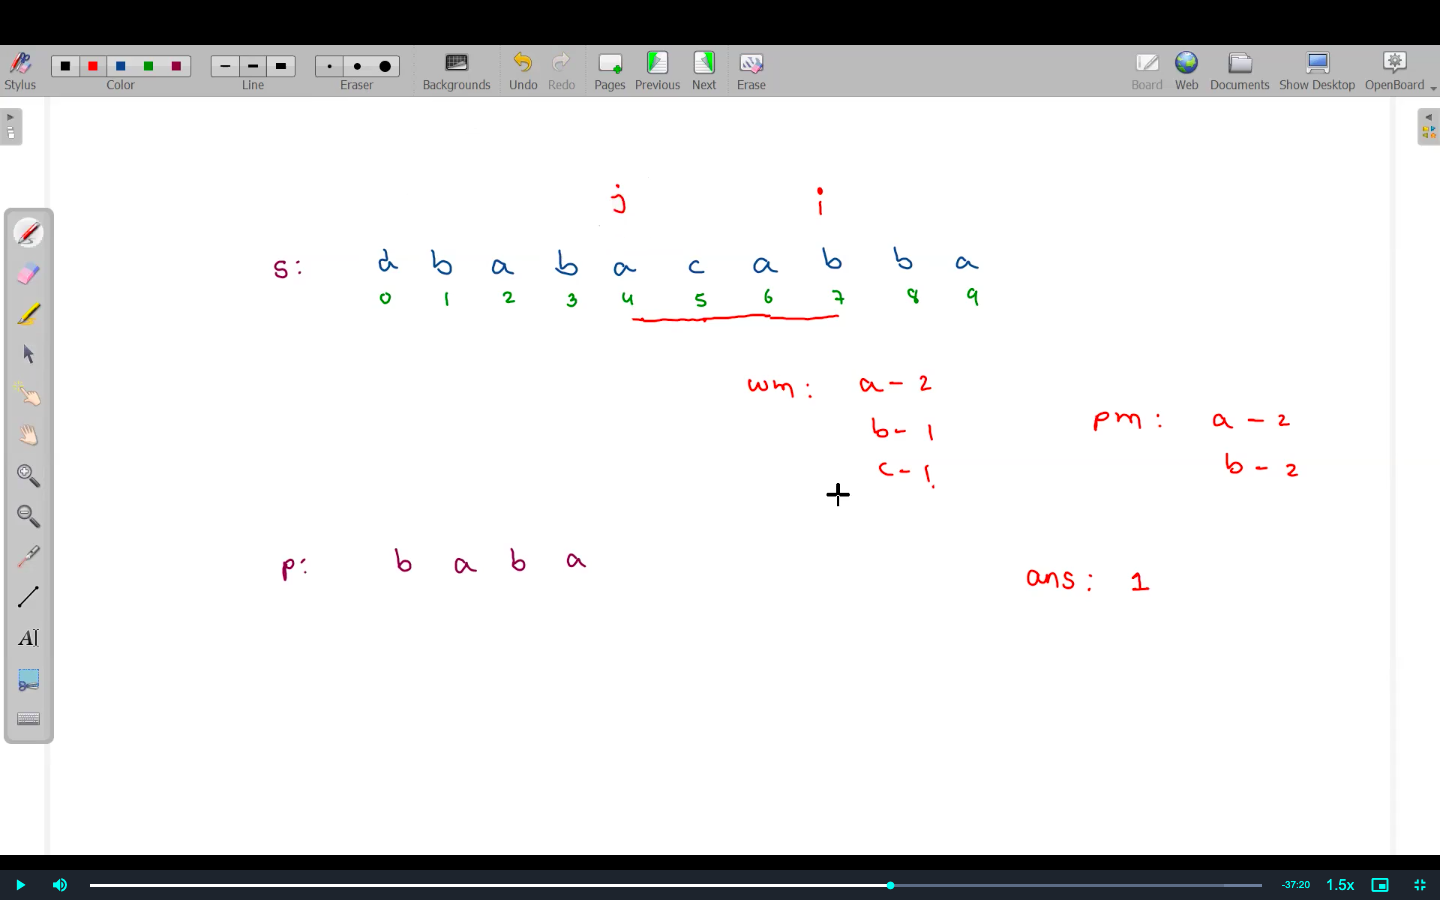 Stylus Color Line Eraser Backgrounds Undo Redo Pages Previous Next Erase Board Web Documents Show Desktop OpenBoard
j i
s: d b a b a c a b b a
0 1 2 3 4 5 6 7 8 9
wm: a - 2
b - 1
c - 1
pm: a - 2
b - 2
p: b a b a
ans: 1
AI
-37:20 1.5x